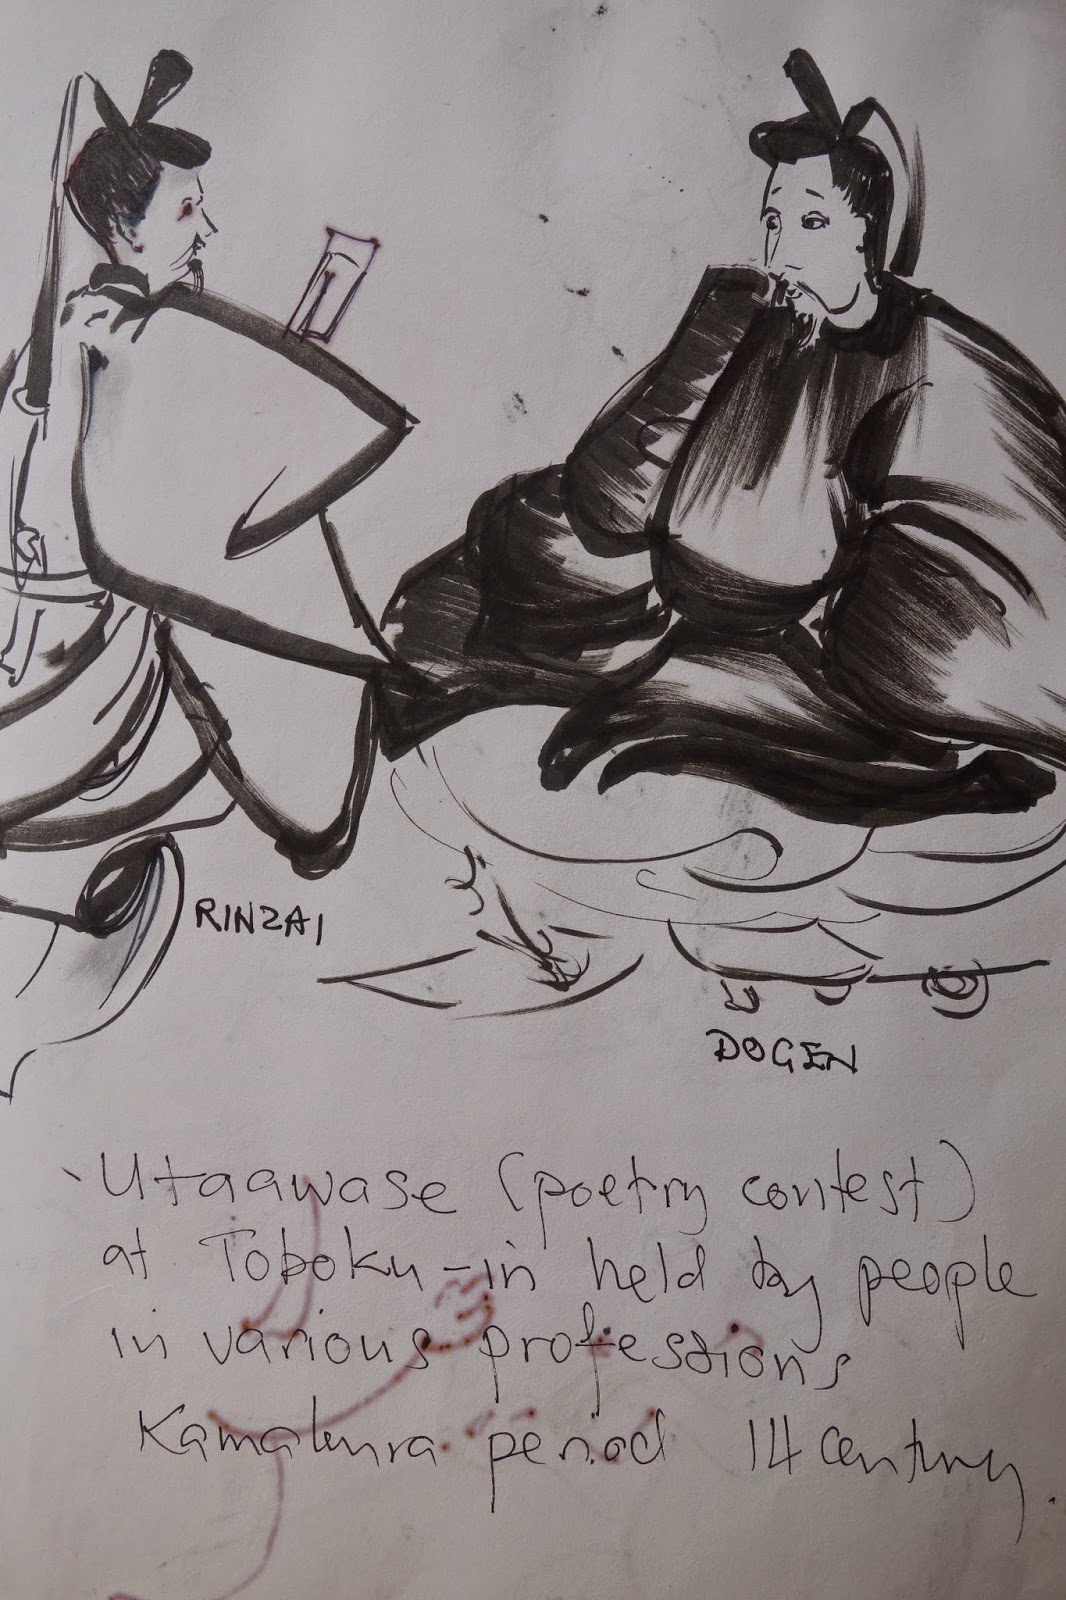 RINZAI
DOGEN
Utaawase (poetry contest)
at Toboku-in held by people
in various professions
Kamakura period 14 century.